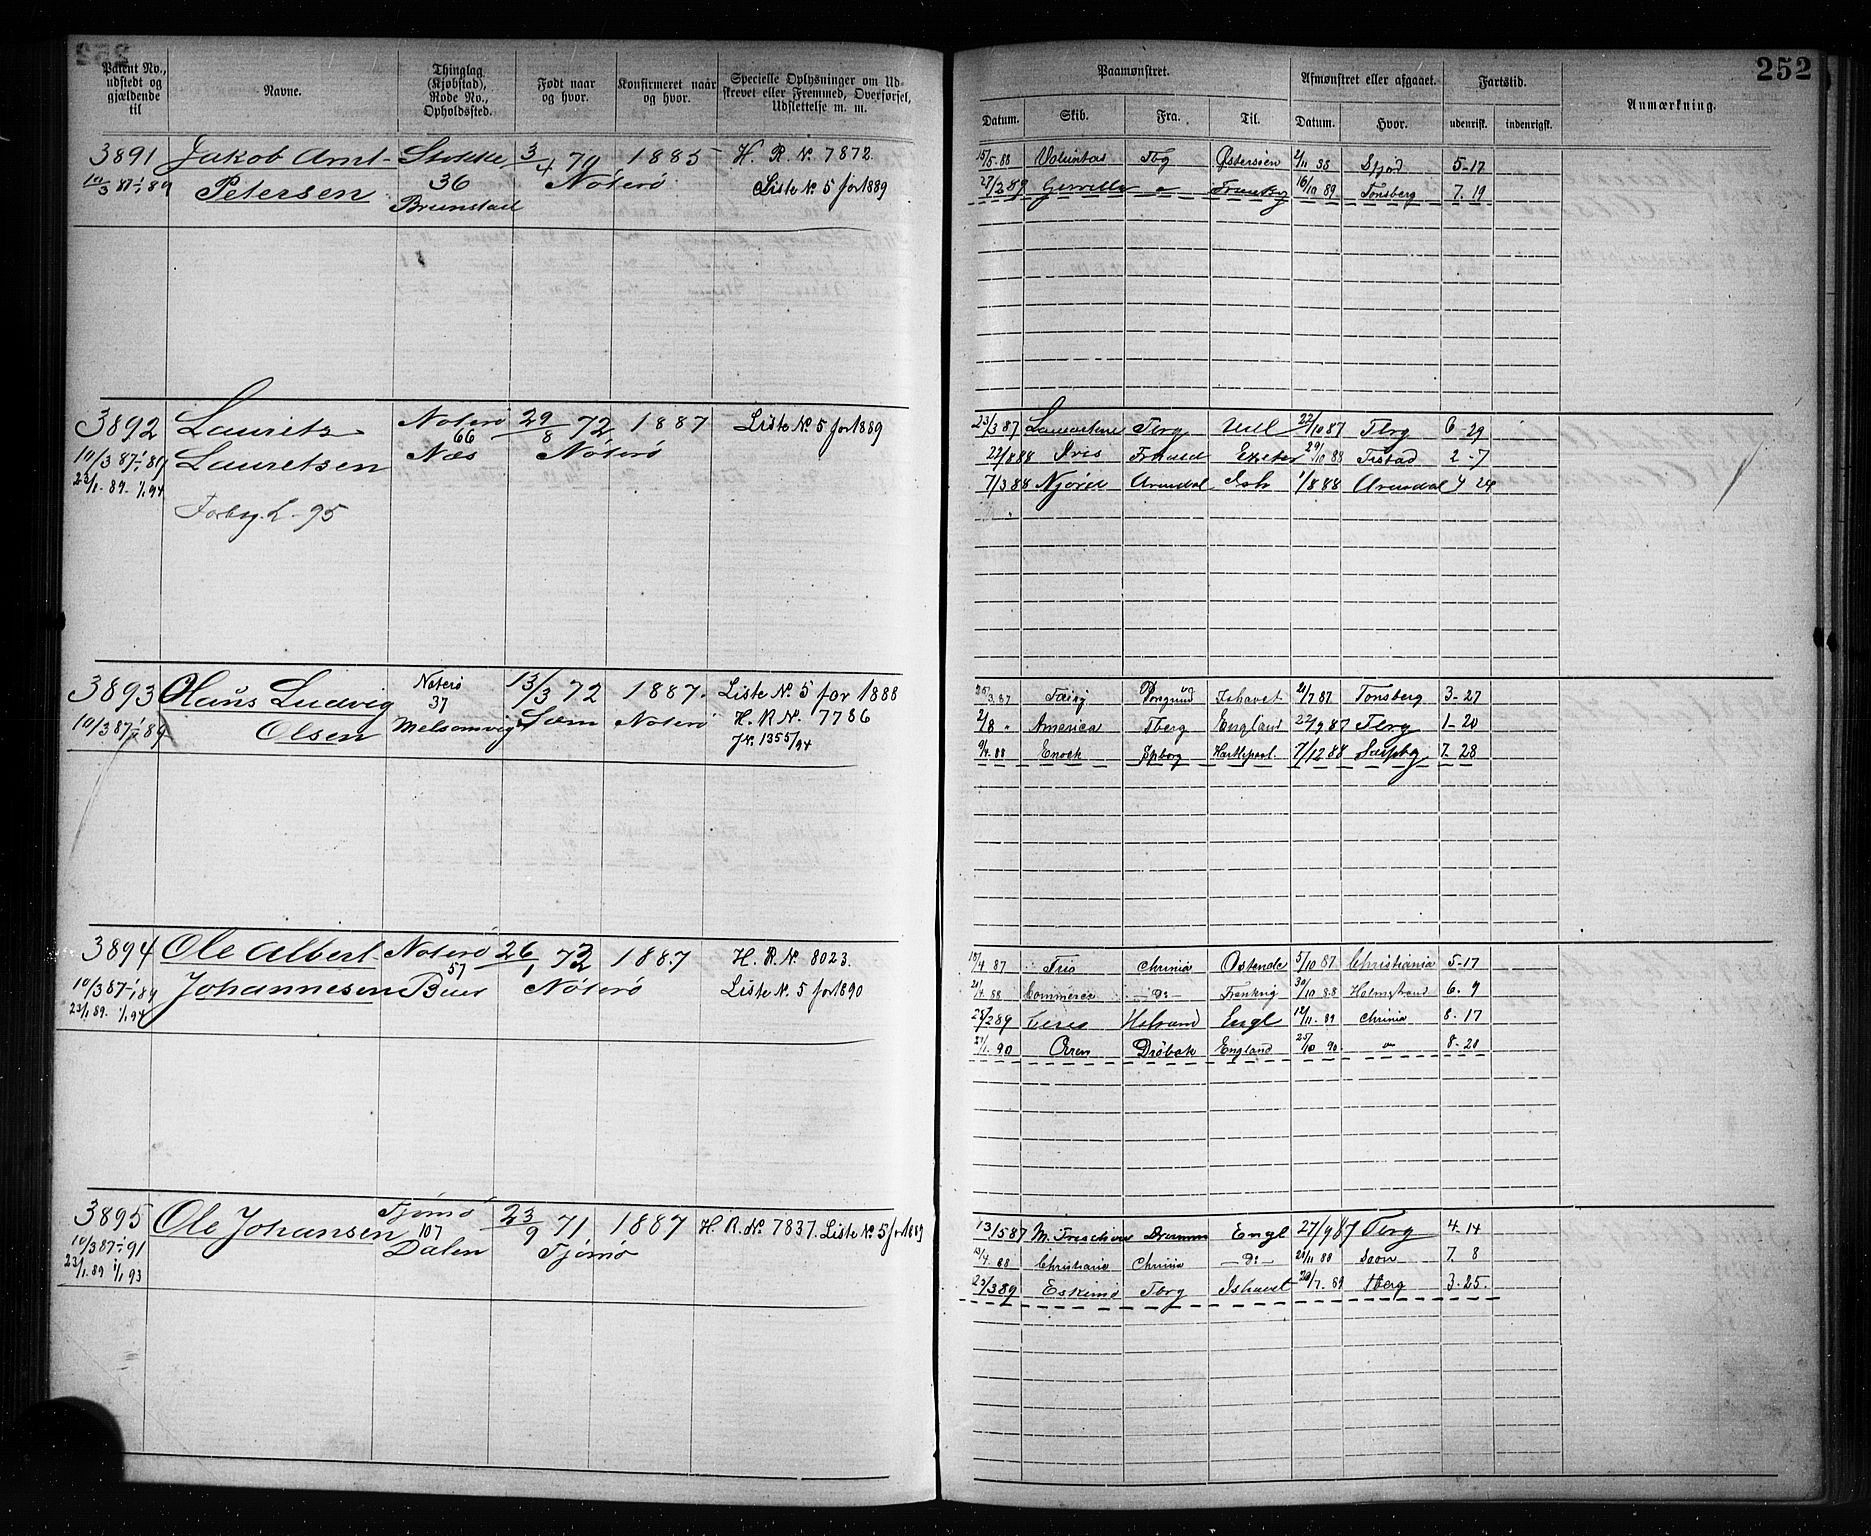 252
Patent No., udstedt og gjældende til
Navne.
Thinglag (Kjøbstad), Rode No., Opholdssted.
Født naar og hvor.
Konfirmeret naar og hvor.
Specielle Oplysninger om Udskrevet eller Fremmed, Overførsel, Udslettelse m. m.
Paamønstret.
Afmønstret eller afgaaet.
Fartstid.
Anmærkning.
Datum. Skib. Fra. Til. Datum. Hvor. udenrigsk. indenrigsk.
3891 Jakob Amt- Stokke 3/4 70 1885 H. R. N. 7872.
10/3 87 1/1 89 Petersen 36 Nøterø Liste N. 5 for 1889
Brunstad
15/5 88 Voluntas Tbg Østersøen 2/11 88 5-17
27/2 89 16/10 89 Tonsberg 7. 19
3892 Lauritz Nøterø 29/8 72 1887 Liste N. 5 for 1889
66
10/3 87 1/1 89 Lauretsen Næs Nøterø
23/1. 89. 1/1 94
95
23/3 87 Tbrg Hull 22/10 87 Tbrg 6-29
22/8 88 Iris Exeter 29/10 88 Tistad 2-7
7/3 88 Njørd Arendal Ish 1/8 88 Arendal 4 24
3893 Hans Ludvig Nøterø 13/3 72 1887. Liste N. 5 for 1888
37
10/3 87 1/1 89 Olsen Melsomvig Sæm Nøterø H. R. N. 7786
JN. 1355/94
3.87 Porsgrund Ishavet 2/7 87 Tonsberg 3-27
2/8 " America Tberg England 22/9 87 Tbrg 1-20
9/4. 88 Enock Spborg Hartlepool 7/12 88 Sarpbg 7. 28
3894 Ole Albert Nøterø 26/1 72 1887 H. R. N. 8023.
57
10/3 87 1/1 89 Johannesen Buer Nøterø Liste N. 5 for 1890
23/1. 89. 1/1 94
18/4 87 Iris Chrinia Ostende 5/10 87 Christiania 5-17
21/4. 88 Commerce - Do - Frankrig 30/10 88 Holmstrand 6. 9
28/2 89 Ceres Engl 12/11. 89 Chrinia 8-17
90 Drøbak England 25/10 90. " 8-20
3895 Ole Johansen Tjømø 23/9 71 1887 H. R. N. 7837. Liste N. 5 for 1889
107
10/3 87 1/1 91 Dalen Tjømø
23/1. 89 1/1 93
13/5 87 Drammen Engl 27/9 87 Tbrg 4. 14
13/4 88 Christiane Chrinia - Do - 20/11 88 7. 8
23/3 89 Eskimo Tbrg Ishavet 20/7. 89 Tberg 3-25.